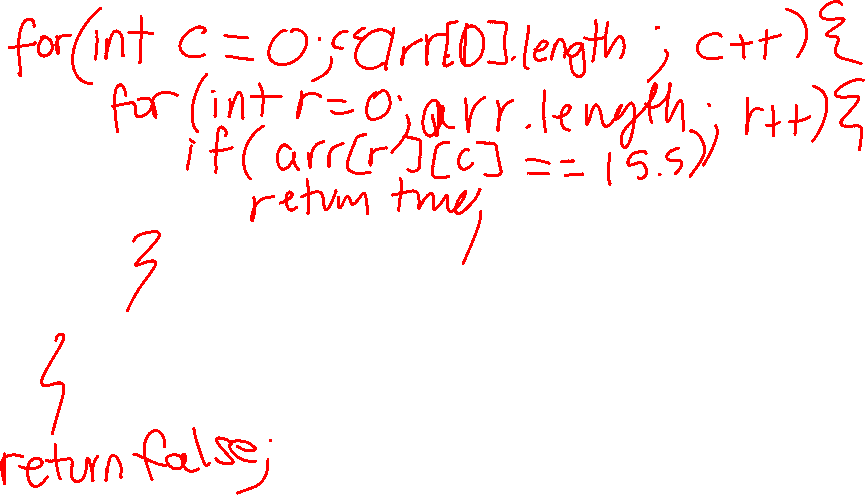 for(int c=0;c<arr[0].length; c++){
for(int r=0;arr.length; r++){
if(arr[r][c] == 15.5)
return true;
}
}
return false;